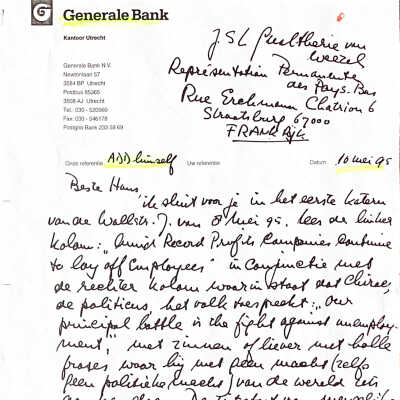 G Generale Bank
Kantoor Utrecht
Generale Bank N.V.
Newtonlaan 57
3584 BP Utrecht
Postbus 85365
3508 AJ Utrecht
Tel. 030 - 520560
Fax. 030 - 546178
Postgiro Bank 233 59 69
J.S.L. Gualthérie van
Weezel
Représentation Permanente
des Pays-Bas
Rue Erckmann Chatrion 6
Straatsburg 67000
FRANKRijk
Onze referentie ADD himself Uw referentie Datum 10 mei 95
Beste Hans
ik sluit voor je in het eerste katern
van de Wallstr. J. van 8 mei 95, lees de linker
kolom: "Amid Record Profits Companies Continue
to lay off Employees" in conjunctie met
de rechter kolom waarin staat dat Chirac,
de politicus, het volk toespreekt: "Our
principal battle is the fight against unemploy-
ment", met zinnen of liever met holle
frases waar hij met geen macht (zelfs
geen politieke macht) van de wereld iets